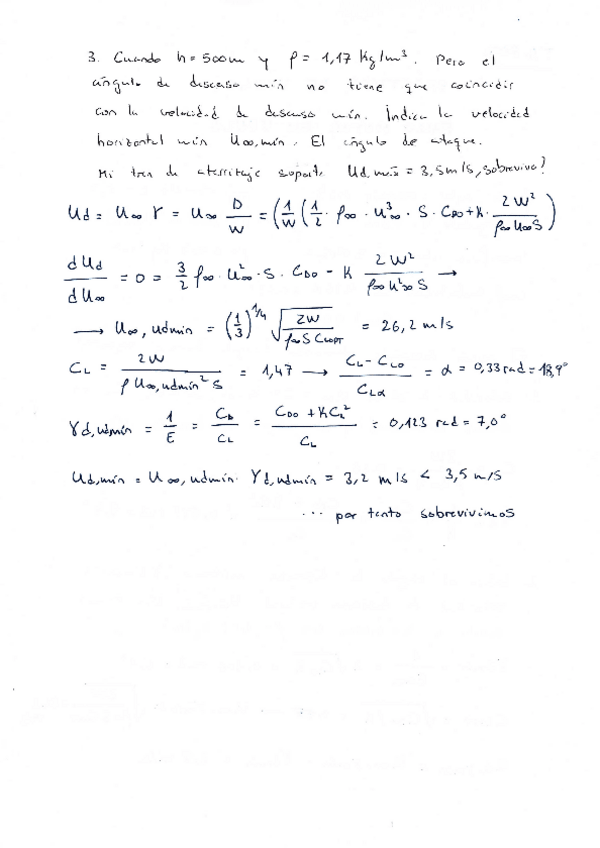 3. Cuando h = 500m y ρ = 1,17 Kg/m³. Pero el
ángulo de descenso mín no tiene que coincidir
con la velocidad de descenso mín. Indica la velocidad
horizontal mín U∞,mín. El ángulo de ataque.
Mi tren de aterritaje soporta Ud,máx = 3,5m/s, sobrevivo?
Ud = U∞ γ = U∞ D/W = (1/W (1/2 · ρ∞ · U∞³ · S · CD0 + K · 2W²/ρ∞ U∞ S)
dUd/dU∞ = 0 = 3/2 ρ∞ · U∞² · S · CD0 - K 2W²/ρ∞ U∞² S →
→ U∞, udmin = (1/3)^1/4 √(2W/ρ∞ S CLOPT) = 26,2 m/s
CL = 2W/ρ U∞,udmin² S = 1,47 → CL - CL0/CLα = α = 0,33 rad = 18,9°
γd,udmín = 1/E = CD/CL = CD0 + KCL²/CL = 0,123 rad = 7,0°
Ud,mín = U∞,udmín · γd,udmín = 3,2 m/s < 3,5 m/s
... por tanto sobrevivimos